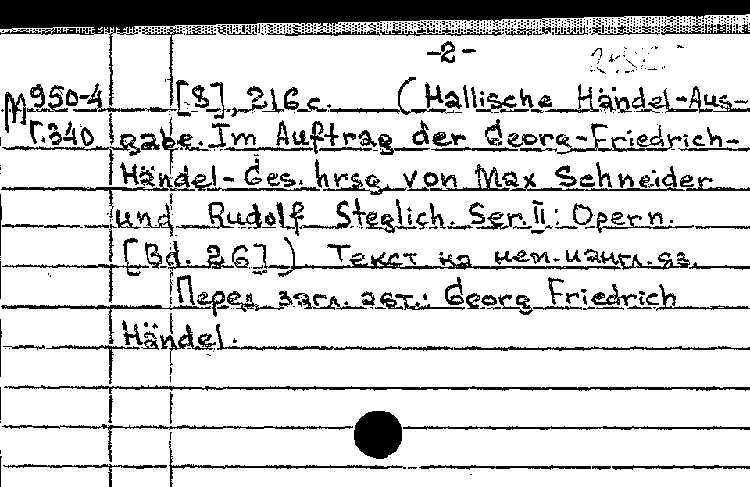 -2-
М 950-4 [8], 216 с. (Hallische Händel-Aus-
Т.340 gabe. Im Auftrag der Georg-Friedrich-
Händel-Ges. hrsg. von Max Schneider
und Rudolf Steglich. Ser. II: Opern.
[Bd. 26]) Текст на нем. и англ. яз.
Перед загл. авт.: Georg Friedrich
Händel.